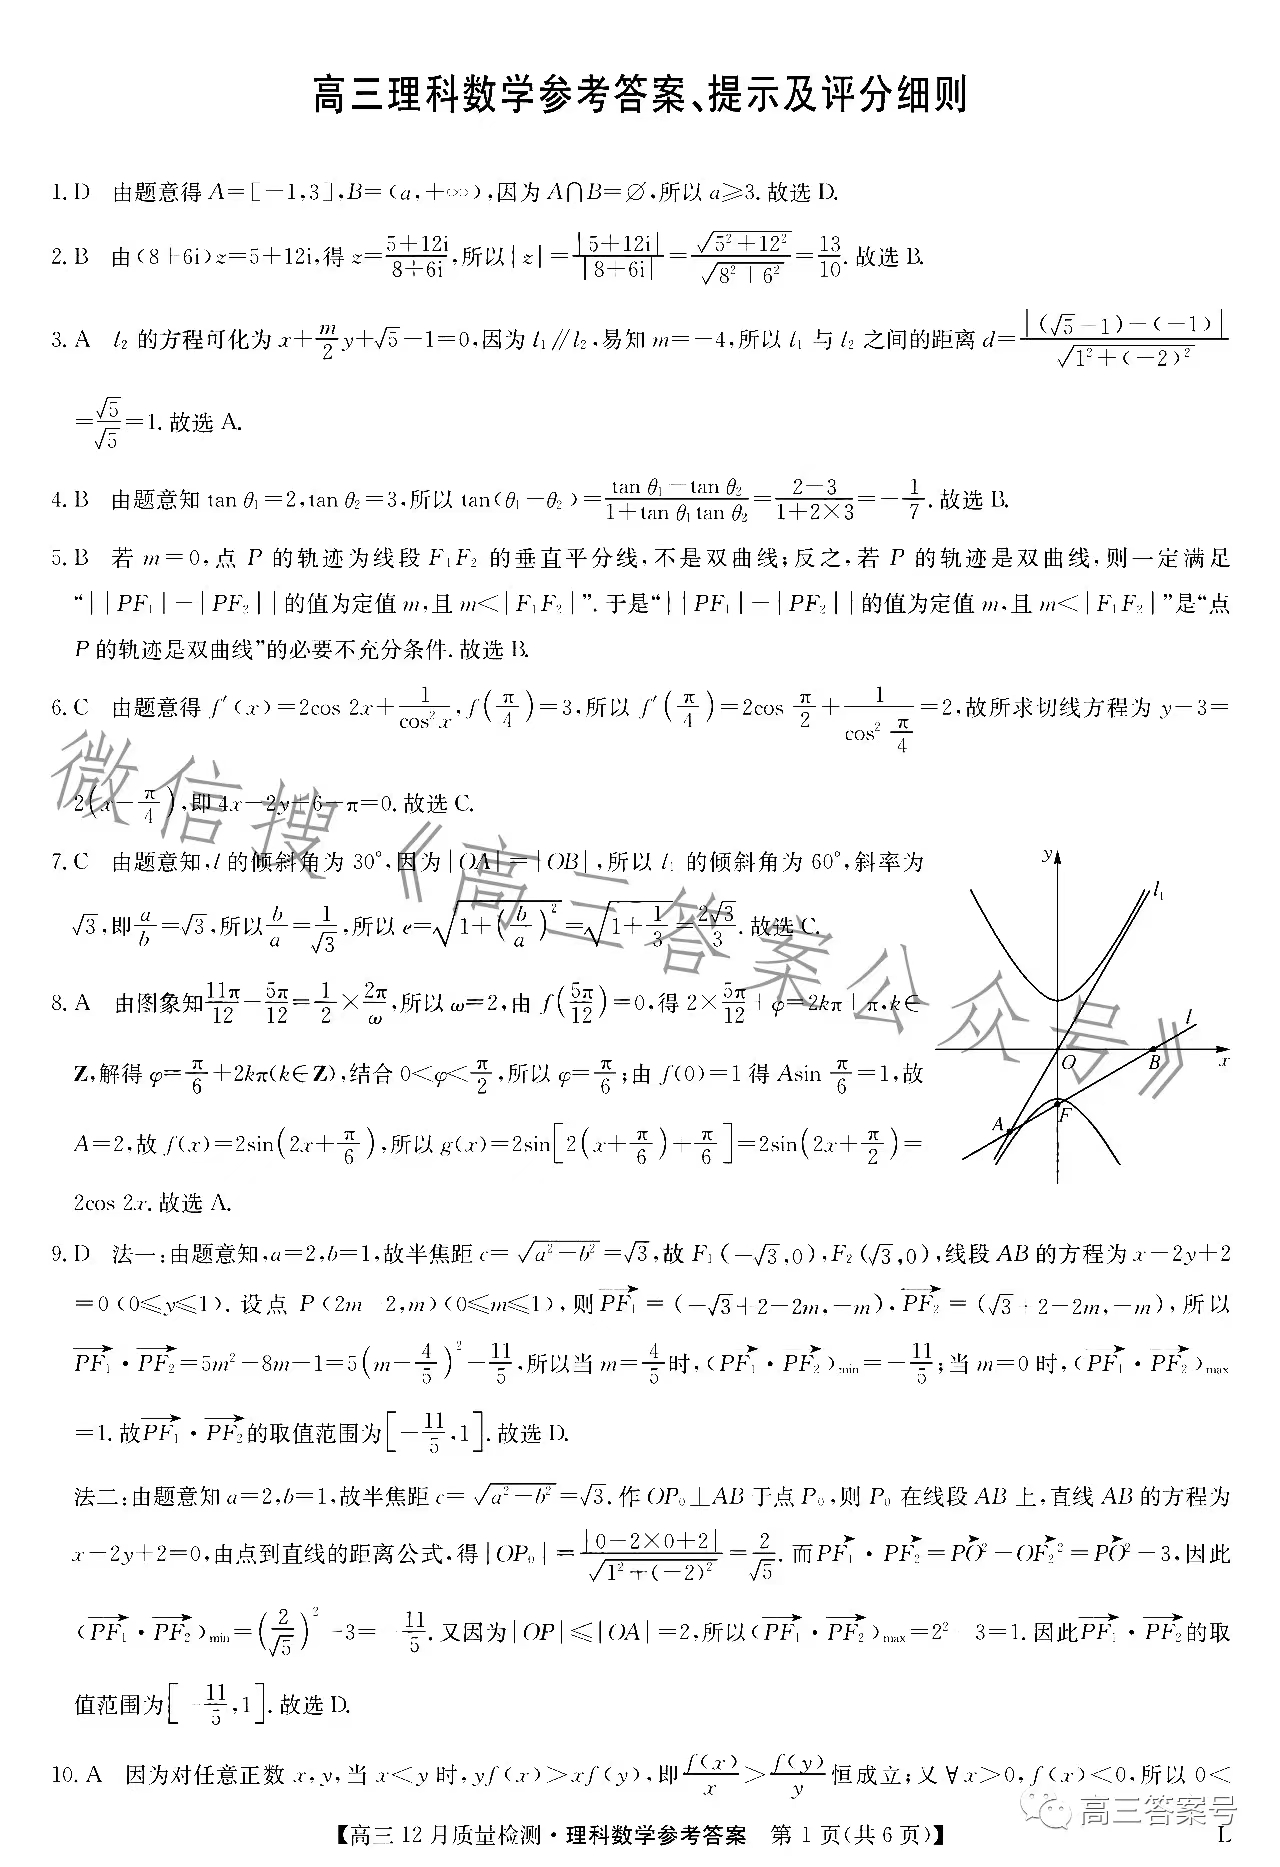 高三理科数学参考答案、提示及评分细则
1. D 由题意得 A=[-1,3],B=(a,+∞),因为 A∩B=∅,所以 a≥3. 故选 D.
2. B 由(8+6i)z=5+12i,得 z=\frac{5+12i}{8+6i},所以|z|=\frac{|5+12i|}{|8+6i|}=\frac{\sqrt{5^2+12^2}}{\sqrt{8^2+6^2}}=\frac{13}{10}. 故选 B.
3. A l₂ 的方程可化为 x+\frac{m}{2}y+√5-1=0,因为 l₁∥l₂,易知 m=-4,所以 l₁ 与 l₂ 之间的距离 d=\frac{|(√5-1)-(-1)|}{\sqrt{1^2+(-2)^2}}
=\frac{√5}{√5}=1. 故选 A.
4. B 由题意知 tan θ₁=2,tan θ₂=3,所以 tan(θ₁-θ₂)=\frac{tan θ₁-tan θ₂}{1+tan θ₁tan θ₂}=\frac{2-3}{1+2×3}=-\frac{1}{7}. 故选 B.
5. B 若 m=0,点 P 的轨迹为线段 F₁F₂ 的垂直平分线,不是双曲线;反之,若 P 的轨迹是双曲线,则一定满足
“||PF₁|-|PF₂||的值为定值 m,且 m<|F₁F₂|”. 于是“||PF₁|-|PF₂||的值为定值 m,且 m<|F₁F₂|”是“点
P 的轨迹是双曲线”的必要不充分条件. 故选 B.
6. C 由题意得 f′(x)=2cos 2x+\frac{1}{cos²x},f(\frac{π}{4})=3,所以 f′(\frac{π}{4})=2cos \frac{π}{2}+\frac{1}{cos²\frac{π}{4}}=2,故所求切线方程为 y-3=
2(x-\frac{π}{4}),即 4x-2y+6-π=0. 故选 C.
7. C 由题意知,l 的倾斜角为 30°,因为|OA|=|OB|,所以 l₁ 的倾斜角为 60°,斜率为
√3,即\frac{a}{b}=√3,所以\frac{b}{a}=\frac{1}{√3},所以 e=\sqrt{1+(\frac{b}{a})^2}=\sqrt{1+\frac{1}{3}}=\frac{2√3}{3}. 故选 C.
y
l₁
l
O
B
x
F
A
8. A 由图象知\frac{11π}{12}-\frac{5π}{12}=\frac{1}{2}×\frac{2π}{ω},所以 ω=2,由 f(\frac{5π}{12})=0,得 2×\frac{5π}{12}+φ=2kπ+π,k∈
Z,解得 φ=\frac{π}{6}+2kπ(k∈Z),结合 0<φ<\frac{π}{2},所以 φ=\frac{π}{6};由 f(0)=1 得 Asin \frac{π}{6}=1,故
A=2,故 f(x)=2sin(2x+\frac{π}{6}),所以 g(x)=2sin[2(x+\frac{π}{6})+\frac{π}{6}]=2sin(2x+\frac{π}{2})=
2cos 2x. 故选 A.
9. D 法一:由题意知,a=2,b=1,故半焦距 c=\sqrt{a²-b²}=√3,故 F₁(-√3,0),F₂(√3,0),线段 AB 的方程为 x-2y+2
=0(0≤y≤1). 设点 P(2m-2,m)(0≤m≤1),则\overrightarrow{PF₁}=(-√3+2-2m,-m),\overrightarrow{PF₂}=(√3+2-2m,-m),所以
\overrightarrow{PF₁}·\overrightarrow{PF₂}=5m²-8m+1=5(m-\frac{4}{5})²-\frac{11}{5},所以当 m=\frac{4}{5}时,(\overrightarrow{PF₁}·\overrightarrow{PF₂})min=-\frac{11}{5};当 m=0 时,(\overrightarrow{PF₁}·\overrightarrow{PF₂})max
=1. 故\overrightarrow{PF₁}·\overrightarrow{PF₂}的取值范围为[-\frac{11}{5},1]. 故选 D.
法二:由题意知 a=2,b=1,故半焦距 c=\sqrt{a²-b²}=√3. 作 OP₀⊥AB 于点 P₀,则 P₀ 在线段 AB 上,直线 AB 的方程为
x-2y+2=0,由点到直线的距离公式,得|OP₀|=\frac{|0-2×0+2|}{\sqrt{1²+(-2)²}}=\frac{2}{√5}. 而\overrightarrow{PF₁}·\overrightarrow{PF₂}=\overrightarrow{PO}²-\overrightarrow{OF₂}²=\overrightarrow{PO}²-3,因此
(\overrightarrow{PF₁}·\overrightarrow{PF₂})min=(\frac{2}{√5})²-3=-\frac{11}{5}. 又因为|OP|≤|OA|=2,所以(\overrightarrow{PF₁}·\overrightarrow{PF₂})max=2²-3=1. 因此\overrightarrow{PF₁}·\overrightarrow{PF₂}的取
值范围为[-\frac{11}{5},1]. 故选 D.
10. A 因为对任意正数 x,y,当 x<y 时,yf(x)>xf(y),即\frac{f(x)}{x}>\frac{f(y)}{y}恒成立;又∀x>0,f(x)<0,所以 0<
【高三 12 月质量检测·理科数学参考答案 第 1 页(共 6 页)】
L
微信搜《高三答案公众号》
高三答案号